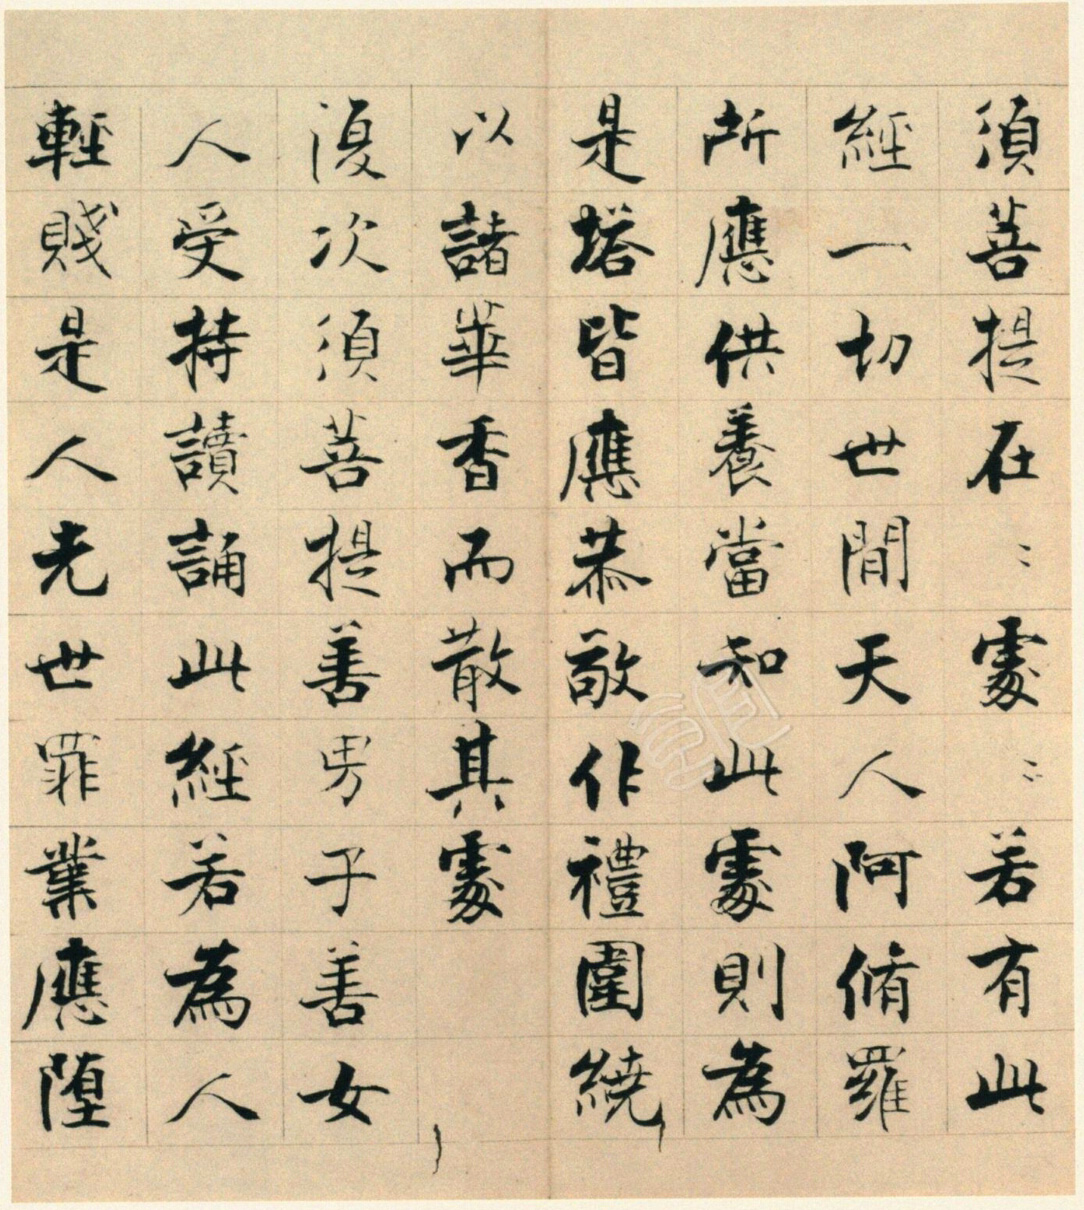 須菩提在〻處〻若有此
經一切世間天人阿脩羅
所應供養當知此處則為
是塔皆應恭敬作禮圍繞
以諸華香而散其處
復次須菩提善男子善女
人受持讀誦此經若為人
輕賤是人先世罪業應墮